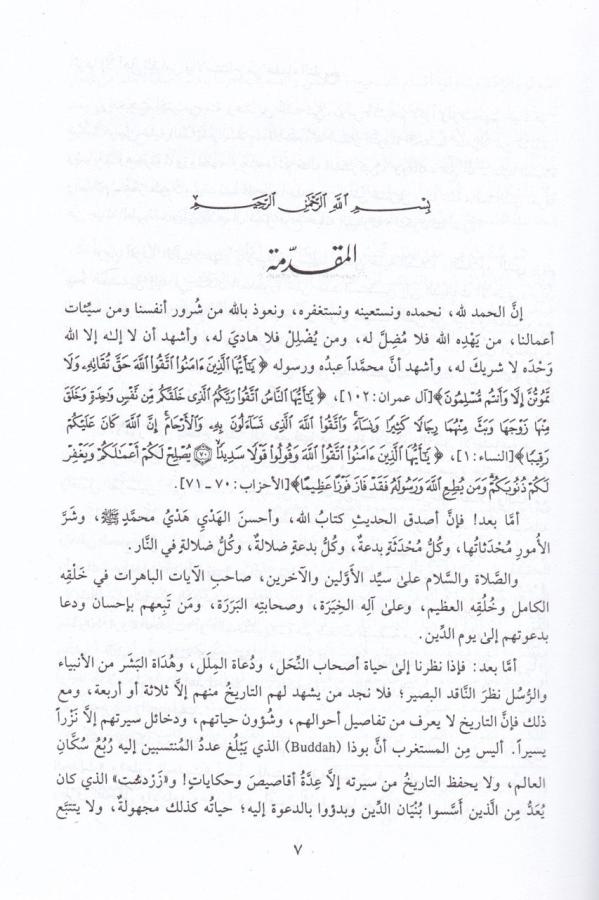 بِسْمِ اللَّهِ الرَّحْمَٰنِ الرَّحِيمِ
المقدّمة
إنَّ الحمد لله، نحمده ونستعينه ونستغفره، ونعوذ بالله من شُرور أنفسنا ومن سيِّئات
أعمالنا، من يَهْدِه الله فلا مُضِلَّ له، ومن يُضْلِلْ فلا هاديَ له، وأشهد أن لا إلـٰه إلا الله
وَحْدَه لا شريكَ له، وأشهد أنَّ محمَّداً عبدُه ورسوله ﴿ يَٰٓأَيُّهَا ٱلَّذِينَ ءَامَنُوا۟ ٱتَّقُوا۟ ٱللَّهَ حَقَّ تُقَاتِهِۦ وَلَا
تَمُوتُنَّ إِلَّا وَأَنتُم مُّسْلِمُونَ ﴾[آل عمران: ١٠٢]، ﴿ يَٰٓأَيُّهَا ٱلنَّاسُ ٱتَّقُوا۟ رَبَّكُمُ ٱلَّذِى خَلَقَكُم مِّن نَّفْسٍ وَٰحِدَةٍ وَخَلَقَ
مِنْهَا زَوْجَهَا وَبَثَّ مِنْهُمَا رِجَالًا كَثِيرًا وَنِسَآءً ۚ وَٱتَّقُوا۟ ٱللَّهَ ٱلَّذِى تَسَآءَلُونَ بِهِۦ وَٱلْأَرْحَامَ ۚ إِنَّ ٱللَّهَ كَانَ عَلَيْكُمْ
رَقِيبًا ﴾[النساء: ١]، ﴿ يَٰٓأَيُّهَا ٱلَّذِينَ ءَامَنُوا۟ ٱتَّقُوا۟ ٱللَّهَ وَقُولُوا۟ قَوْلًا سَدِيدًا ﴿٧٠﴾ يُصْلِحْ لَكُمْ أَعْمَٰلَكُمْ وَيَغْفِرْ
لَكُمْ ذُنُوبَكُمْ ۗ وَمَن يُطِعِ ٱللَّهَ وَرَسُولَهُۥ فَقَدْ فَازَ فَوْزًا عَظِيمًا ﴾[الأحزاب: ٧٠ ـ ٧١].
أمَّا بعد! فإنَّ أصدق الحديثِ كتابُ الله، وأحسنَ الهَدْيِ هَدْيُ محمَّدٍ ﷺ، وشَرَّ
الأُمورِ مُحْدَثاتُها، وكُلُّ مُحْدَثَةٍ بدعةٌ، وكُلُّ بدعةٍ ضلالةٌ، وكُلُّ ضلالةٍ في النَّار.
والصَّلاة والسَّلام علىٰ سيِّد الأوَّلين والآخرين، صاحبِ الآيات الباهرات في خَلْقِه
الكامل وخُلُقِه العظيم، وعلىٰ آلِه الخِيَرَة، وصحابتِه البَرَرَة، ومَن تَبِعهم بإحسان ودعا
بدعوتهم إلىٰ يوم الدِّين.
أمَّا بعد: فإذا نظرنا إلىٰ حياة أصحاب النِّحَل، ودُعاة المِلَل، وهُدَاة البَشَر من الأنبياء
والرُّسُل نظرَ النَّاقد البصير؛ فلا نجد من يشهد لهم التاريخُ منهم إلاَّ ثلاثة أو أربعة، ومع
ذلك فإنَّ التاريخَ لا يعرف من تفاصيل أحوالهم، وشُؤون حياتهم، ودخائل سيرتهم إلاَّ نَزْراً
يسيراً. أليس مِن المستغرب أنَّ بوذا (Buddah) الذي يَبْلُغ عددُ المُنتسبين إليه رُبُعَ سُكَّانِ
العالم، ولا يحفظ التاريخُ من سيرته إلاَّ عِدَّةُ أقاصيصَ وحكاياتٍ! و«زَرْدشت» الذي كان
يُعَدُّ مِن الَّذين أَسَّسوا بُنْيَان الدِّين وبدؤوا بالدعوة إليه؛ حياتُه كذلك مجهولةٌ، ولا يتتبَّع
٧